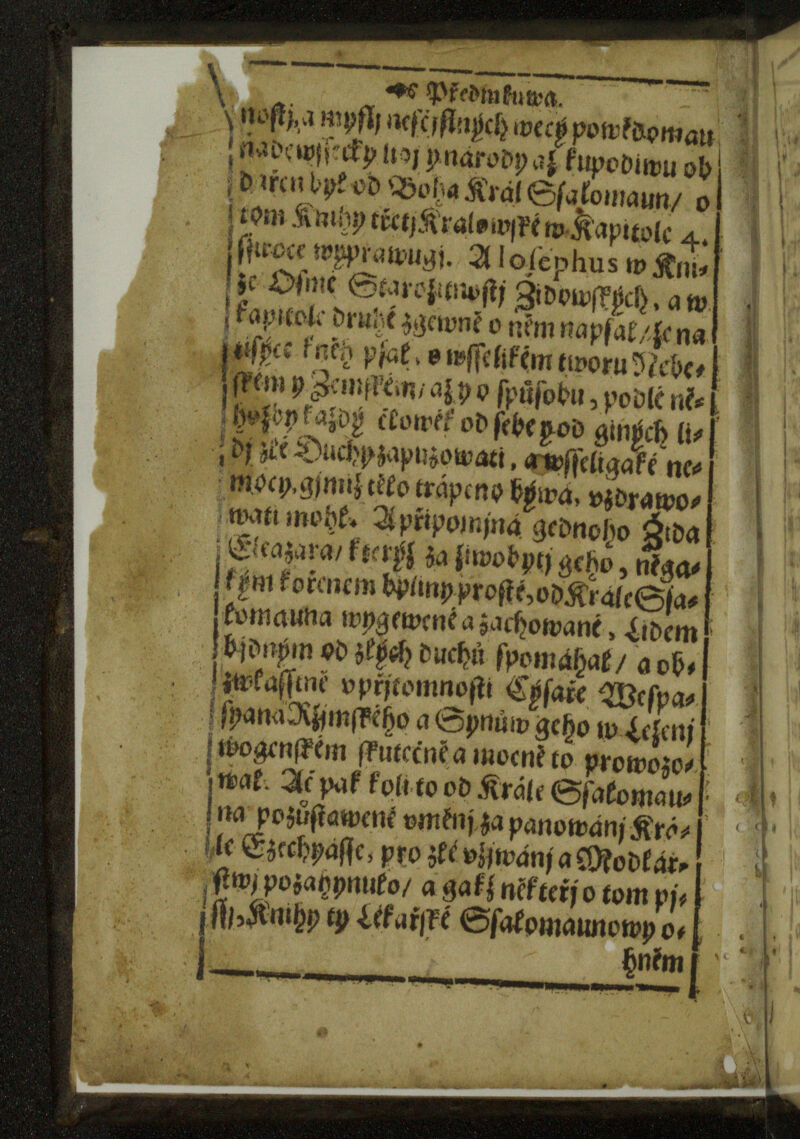 Předmluwa.
noſtj, a myſlj neſčjſlných wecý powědomau
y národy až kupodiwu ob
od Boha Král Ssalomaun/ o
tom Knihy třetj Králowſké w Kapitole 4.
ſſiroce wyprawugj. A Ioſephus w Kni-
že Oſmé Starožitnoſtj Židowſkých, a w
kapitole druhé zgewně o něm napſal/ že na
pſal, o wſſelikém tworu Nebe-
ſkém y Zemſkém/ až y o ſpůſobu, podlé ně-
každý člowěk od ſebe y od giných li-
dj zlé Duchy zapuzowati, a wſſeligaké ne-
mocy, gjmiž tělo trápeno býwá, vzdrawo-
wati mohl. A připomjná gednoho Žida
Eleazara/ kterýž za žiwobytj geho, něga-
kým kořenem bylinny proſté, od Krále Sſa-
lomauna wygewené a zachowané, Lidem
bjdným od zlých duchů ſpomáhal/ a ob-
zwláſſtně v přjtomnoſti Cýſaře Weſpa-
ſyana Ržjmſkého a Synůw geho w Ležení
wogenſkém ſkutečně a mocně to prowozo-
wal. Ač pak koli to od Krále Sſalomau-
na pozůſtawené vměnj za panowánj Krá-
le Ezechyáſſe, pro zlé vžjwánj a Modlář-
ſtwj pozahynulo/ a gakž někteřj o tom pj-
ſſj, Knihy ty Lékařſké Sſalomaunowy o-
hněm